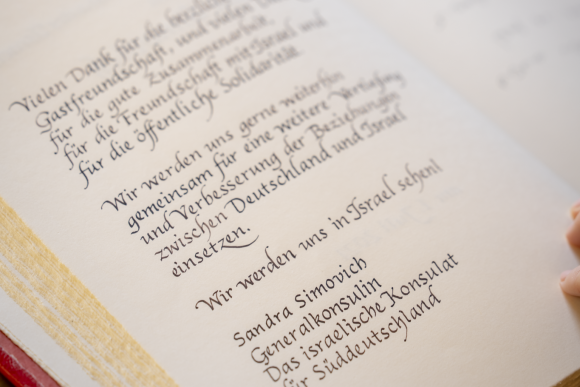 Vielen Dank für die herzliche
Gastfreundschaft, und vielen Dank
für die gute Zusammenarbeit,
für die Freundschaft mit Israel und
für die öffentliche Solidarität.
Wir werden uns gerne weiterhin
gemeinsam für eine weitere Vertiefung
und Verbesserung der Beziehungen
zwischen Deutschland und Israel
einsetzen.
Wir werden uns in Israel sehen!
Sandra Simovich
Generalkonsulin
Das israelische Konsulat
für Süddeutschland